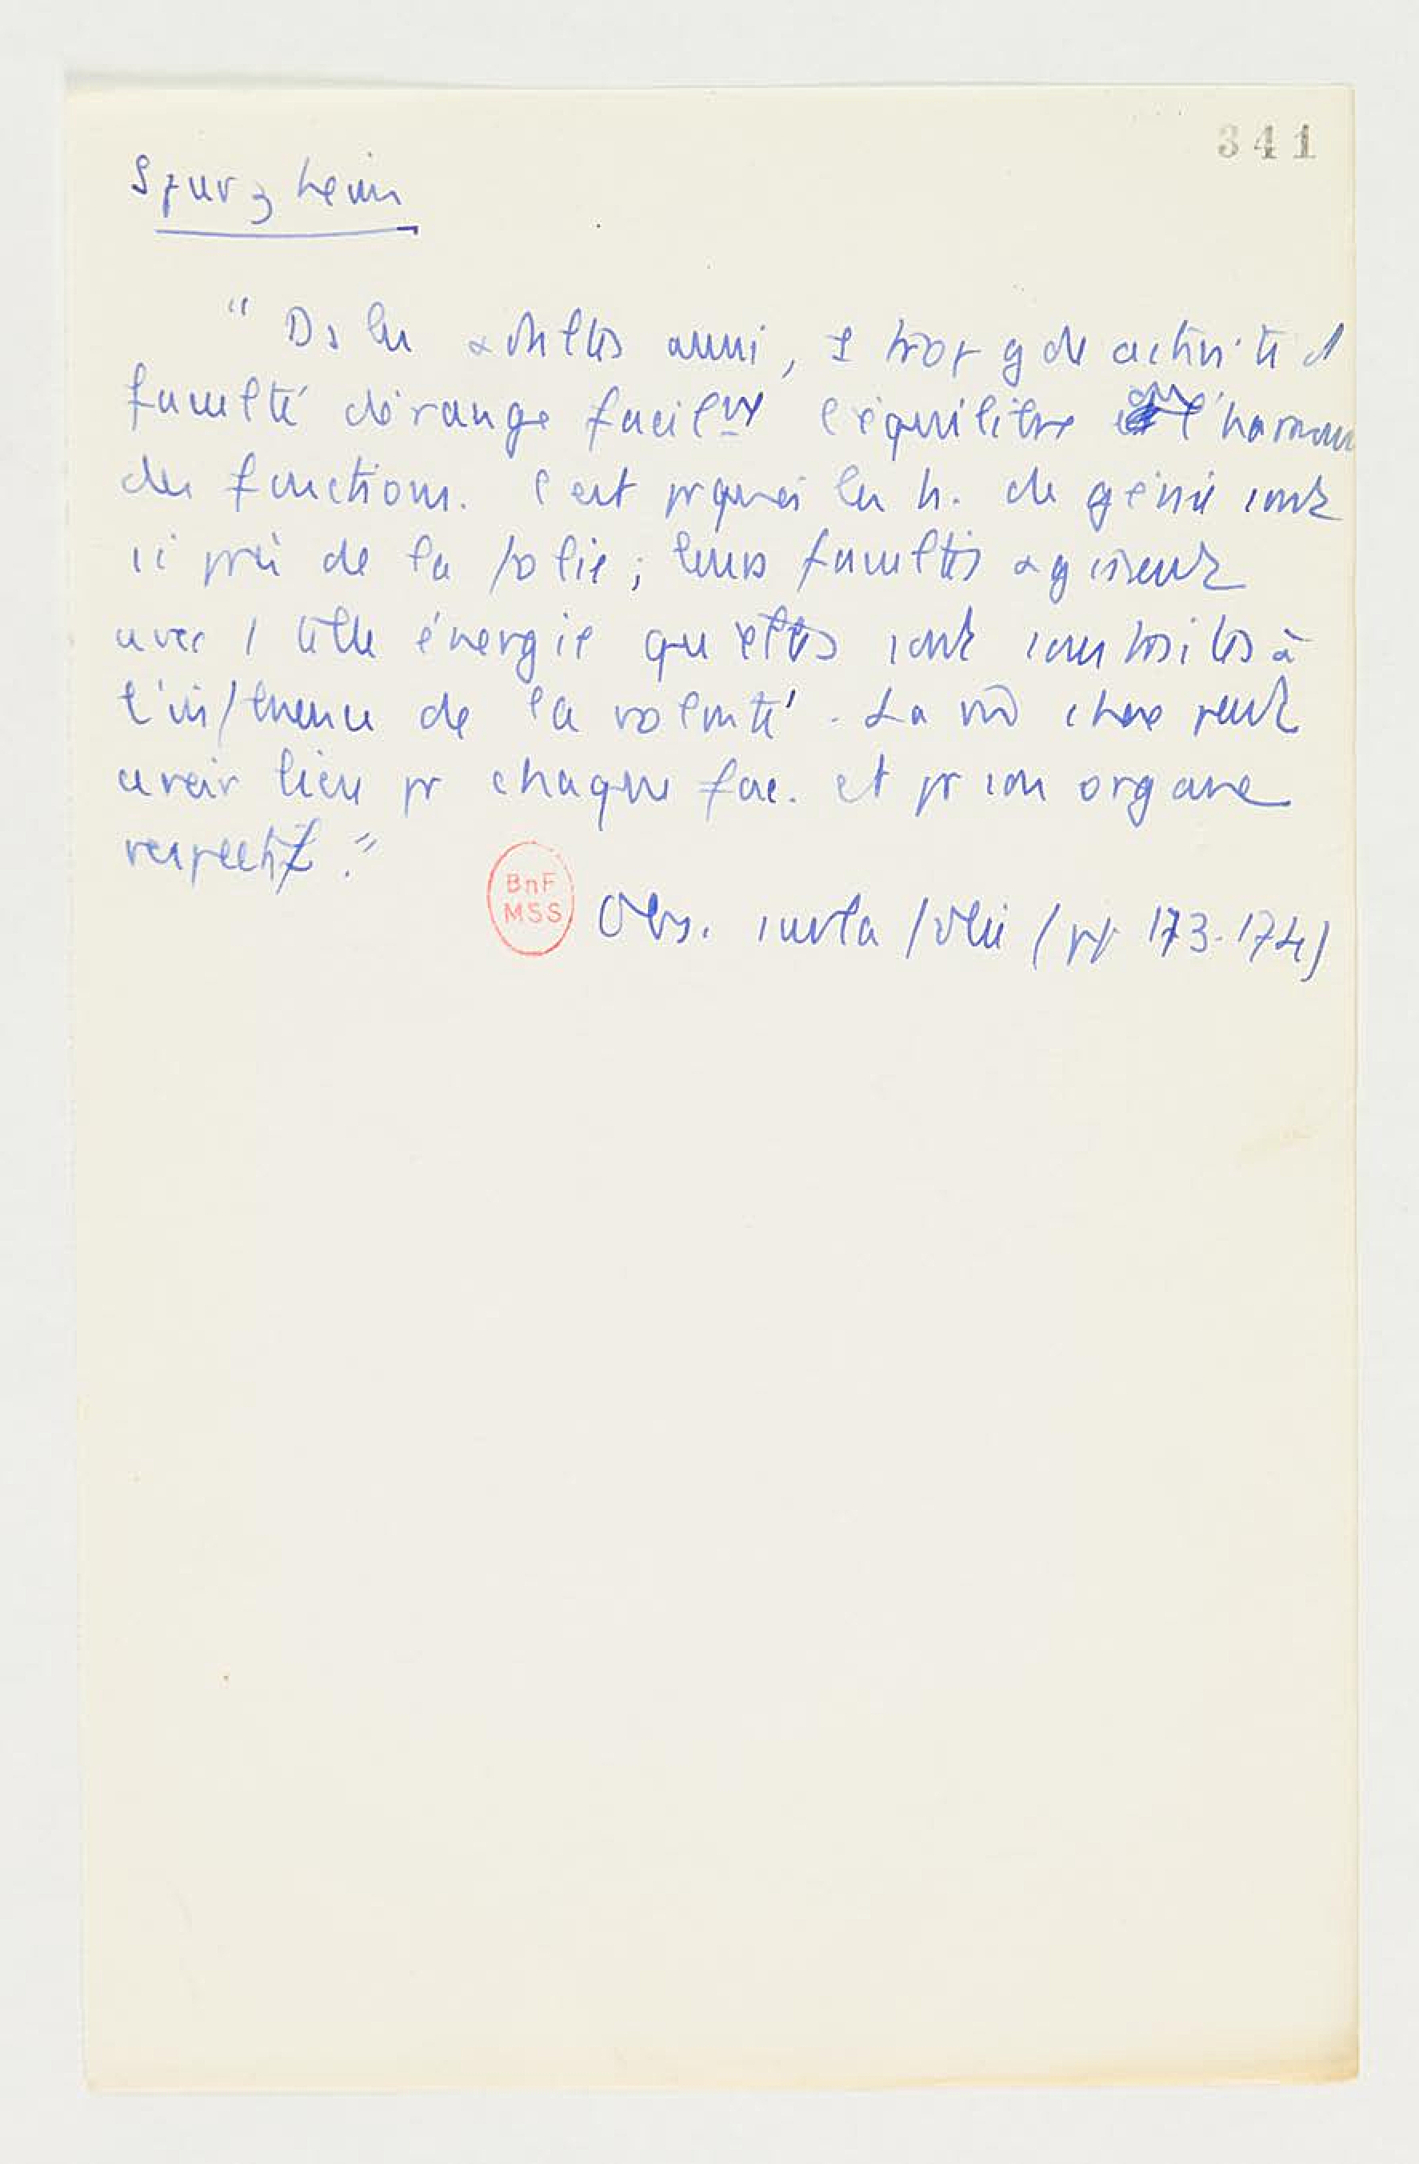 341
Spurzheim
" Ds les adultes aussi, 1 trop gde activité d
faculté dérange facilnt l'équilibre et l'harmon
des fonctions. C'est prquoi les h. de génie sont
si près de la folie ; leurs facultés agissent
avec 1 telle énergie qu'elles sont soustraites à
l'influence de la volonté. La m̂ chose peut
avoir lieu pr chaque fac. et pr son organe
respectif. "
BnF
MSS
Obs. sur la folie (pp 173-174)